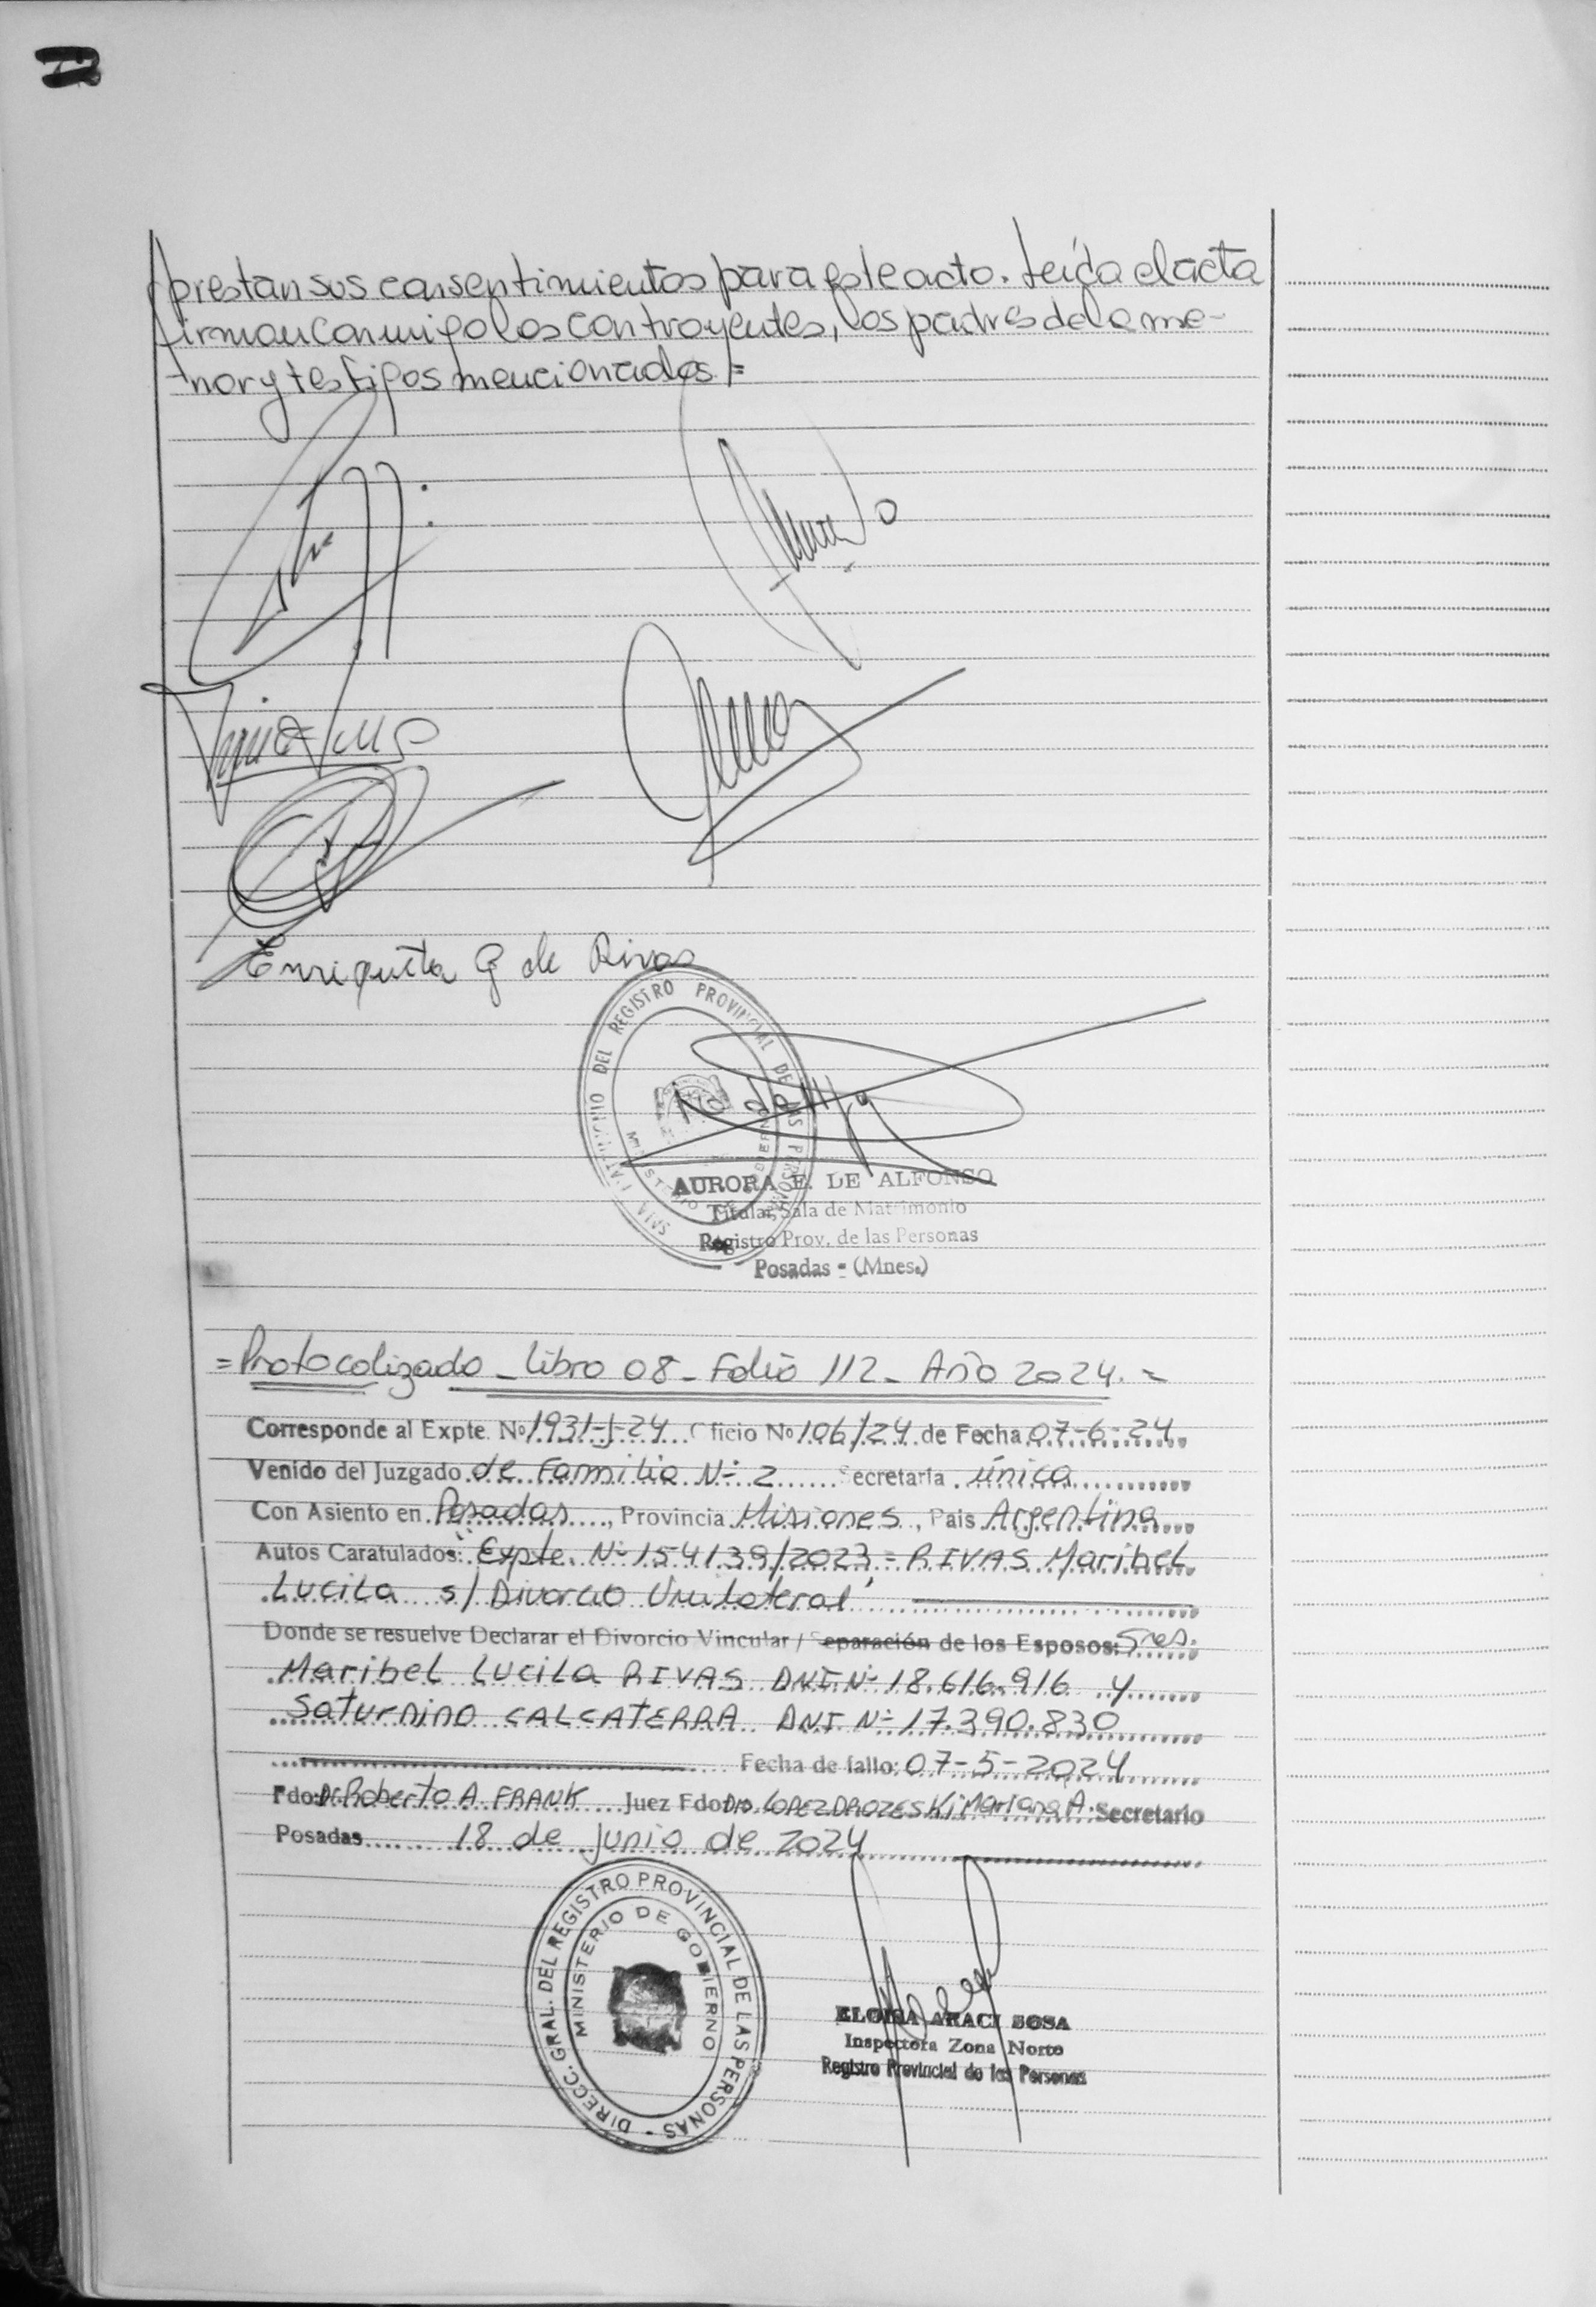 prestan sus consentimientos para este acto. Leída el acta
firman conmigo los contrayentes, los padres de la me-
nor y testigos mencionados =
Enriqueta G de Rivas
SALA MATRIMONIO DEL REGISTRO PROVINCIAL DE LAS PERSONAS
MINISTERIO DE GOBIERNO
AURORA E. DE ALFONSO
Titular, Sala de Matrimonio
Registro Prov. de las Personas
Posadas - (Mnes.)
= Protocolizado - Libro 08 - Folio 112 - Año 2024. =
Corresponde al Expte. Nº 1931-J-24 Oficio Nº 106/24 de Fecha 07-6-24
Venido del Juzgado de Familia Nº 2 Secretaria única
Con Asiento en Posadas, Provincia Misiones, Pais Argentina
Autos Caratulados: "Expte. Nº 154139/2023 = RIVAS Maribel
Lucila s/ Divorcio Unilateral"
Donde se resuelve Declarar el Divorcio Vincular / Separación de los Esposos: Sres.
Maribel Lucila RIVAS DNI Nº 18.616.916 y
Saturnino CALCATERRA DNI Nº 17.390.830
Fecha de fallo: 07-5-2024
Fdo: Dr. Roberto A. FRANK Juez Fdo: Dra. LOPEZ DROZESKI Mariana A. Secretario
Posadas 18 de junio de 2024
DIRECC. GRAL. DEL REGISTRO PROVINCIAL DE LAS PERSONAS -
MINISTERIO DE GOBIERNO
ELOISA ARACI SOSA
Inspectora Zona Norte
Registro Provincial de las Personas